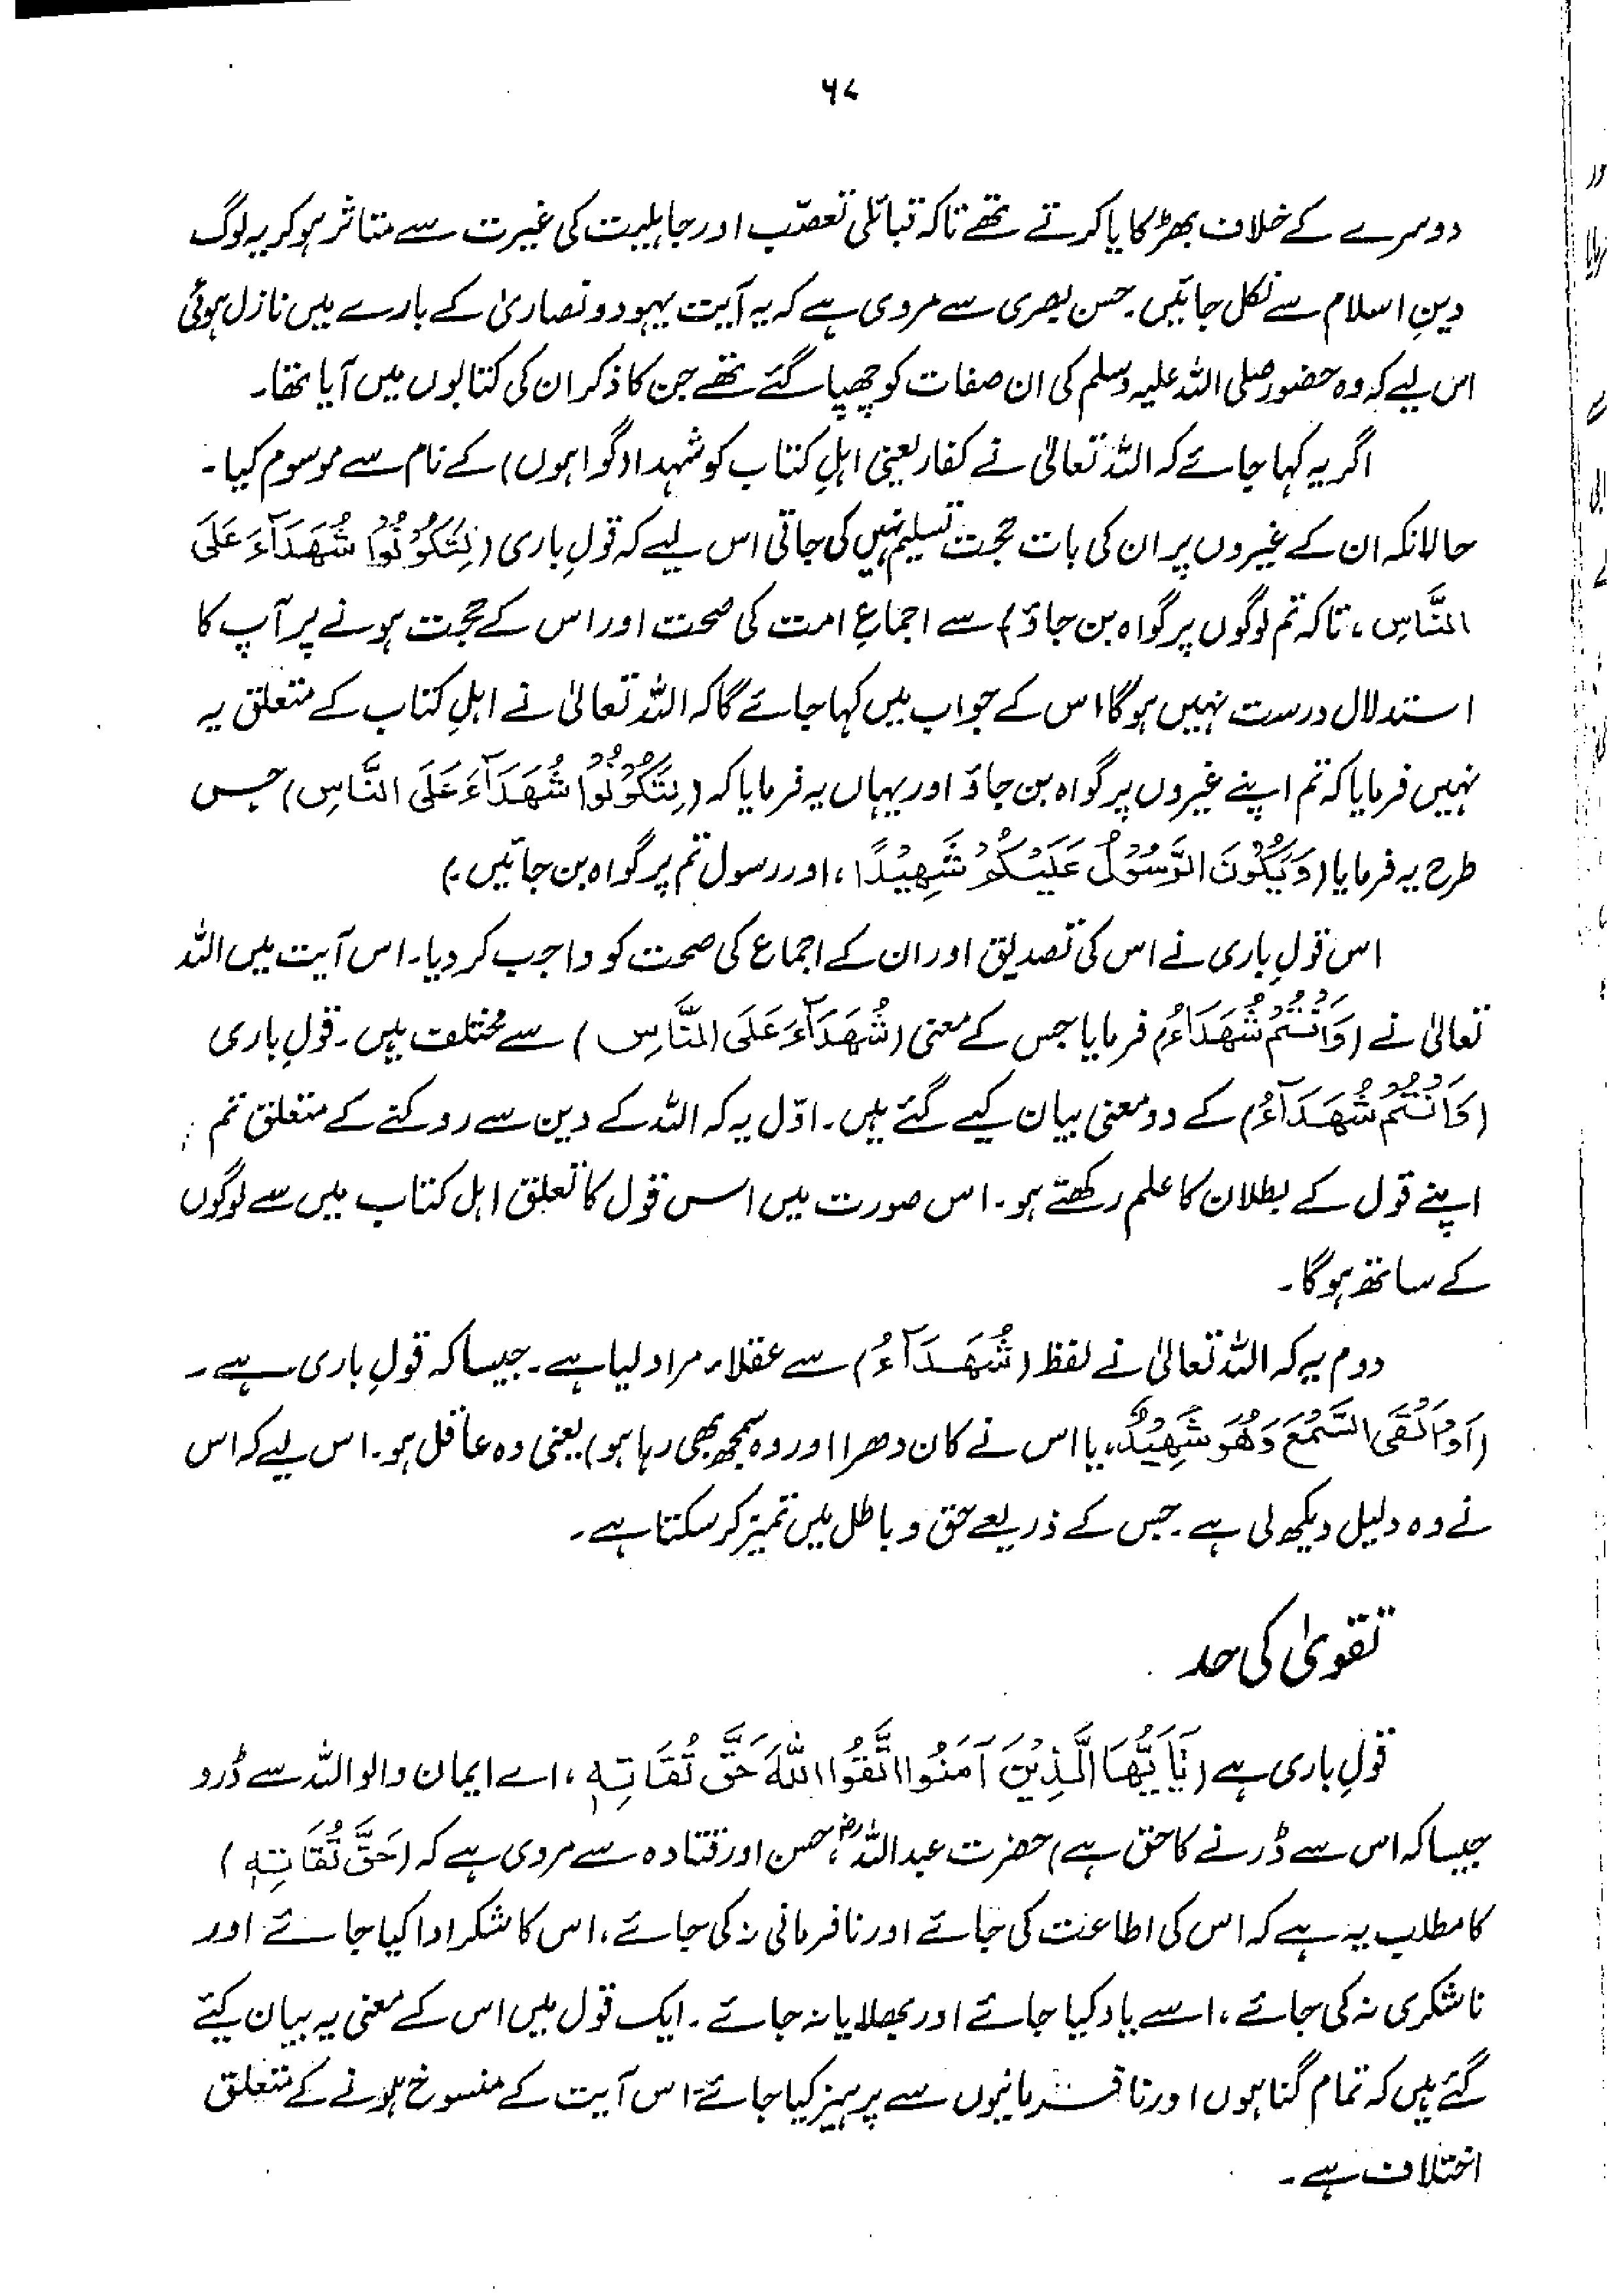 ۶۷
دوسرے کے خلاف بھڑکایا کرتے تھے تاکہ قبائلی تعصّب اور جاہلیت کی غیرت سے متاثر ہو کر یہ لوگ
دینِ اسلام سے نکل جائیں۔ حسن بصری سے مروی ہے کہ یہ آیت یہود و نصاریٰ کے بارے میں نازل ہوئی
اس لیے کہ وہ حضور صلی اللہ علیہ وسلم کی ان صفات کو چھپا گئے تھے جن کا ذکر ان کی کتابوں میں آیا تھا۔
اگر یہ کہا جائے کہ اللہ تعالیٰ نے کفار یعنی اہلِ کتاب کو شہداء (گواہوں) کے نام سے موسوم کیا۔
حالانکہ ان کے غیروں پر ان کی بات حجت تسلیم نہیں کی جاتی اس لیے کہ قولِ باری (لِتَكُوْنُوْا شُهَدَآءَ عَلَى
النَّاسِ، تاکہ تم لوگوں پر گواہ بن جاؤ) سے اجماعِ امت کی صحت اور اس کے حجت ہونے پر آپ کا
استدلال درست نہیں ہوگا اس کے جواب میں کہا جائے گا کہ اللہ تعالیٰ نے اہلِ کتاب کے متعلق یہ
نہیں فرمایا کہ تم اپنے غیروں پر گواہ بن جاؤ اور یہاں یہ فرمایا کہ (لِتَكُوْنُوْا شُهَدَآءَ عَلَى النَّاسِ) جس
طرح یہ فرمایا (وَيَكُوْنَ الرَّسُوْلُ عَلَيْكُمْ شَهِيْدًا، اور رسول تم پر گواہ بن جائیں۔)
اس قولِ باری نے اس کی تصدیق اور ان کے اجماع کی صحت کو واجب کر دیا۔ اس آیت میں اللہ
تعالیٰ نے (وَاَنْتُمْ شُهَدَآءُ) فرمایا جس کے معنی (شُهَدَآءَ عَلَى النَّاسِ) سے مختلف ہیں۔ قولِ باری
(وَاَنْتُمْ شُهَدَآءُ) کے دو معنی بیان کیے گئے ہیں۔ اوّل یہ کہ اللہ کے دین سے روکنے کے متعلق تم
اپنے قول کے بطلان کا علم رکھتے ہو۔ اس صورت میں اس قول کا تعلق اہل کتاب میں سے لوگوں
کے ساتھ ہوگا۔
دوم یہ کہ اللہ تعالیٰ نے لفظ (شُهَدَآءُ) سے عقلاء مراد لیا ہے۔ جیسا کہ قولِ باری ہے۔
(اَوْ اَلْقَى السَّمْعَ وَهُوَ شَهِيْدٌ، یا اس نے کان دھرا اور وہ سمجھ بھی رہا ہو) یعنی وہ عاقل ہو۔ اس لیے کہ اس
نے وہ دلیل دیکھ لی ہے۔ جس کے ذریعے حق و باطل میں تمیز کر سکتا ہے۔
تقویٰ کی حد
قولِ باری ہے (يَآ اَيُّهَا الَّذِيْنَ آمَنُوا اتَّقُوا اللّٰهَ حَقَّ تُقَاتِهٖ، اے ایمان والو اللہ سے ڈرو
جیسا کہ اس سے ڈرنے کا حق ہے) حضرت عبداللہؓ، حسن اور قتادہ سے مروی ہے کہ (حَقَّ تُقَاتِهٖ)
کا مطلب یہ ہے کہ اس کی اطاعت کی جائے اور نافرمانی نہ کی جائے، اس کا شکر ادا کیا جائے اور
ناشکری نہ کی جائے، اسے یاد کیا جائے اور بھلایا نہ جائے۔ ایک قول میں اس کے معنی یہ بیان کیئے
گئے ہیں کہ تمام گناہوں اور نافرمانیوں سے پرہیز کیا جائے۔ اس آیت کے منسوخ ہونے کے متعلق
اختلاف ہے۔